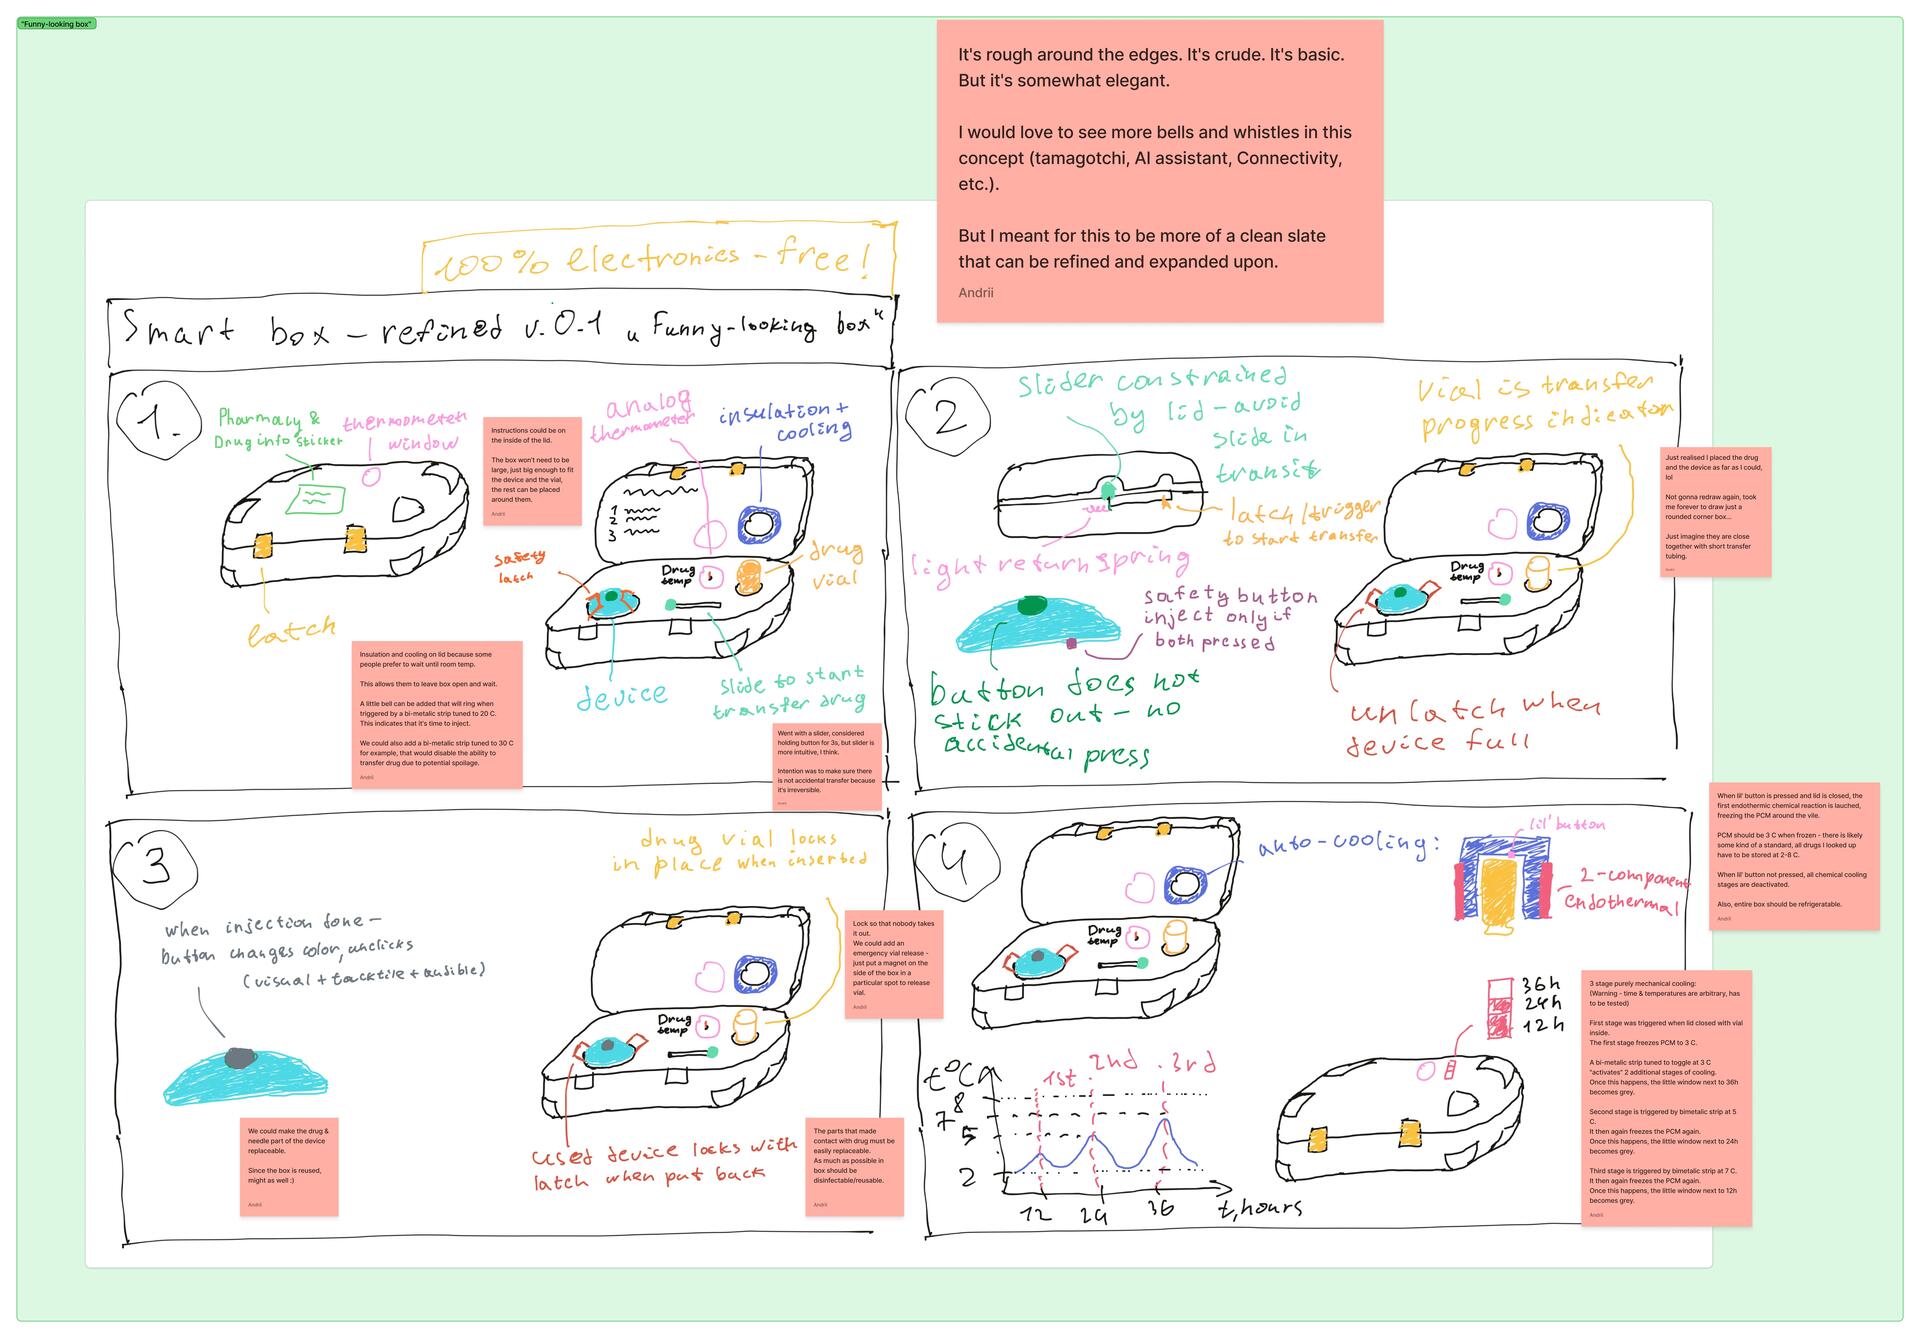 "Funny-looking box"
It's rough around the edges. It's crude. It's basic.
But it's somewhat elegant.
I would love to see more bells and whistles in this
concept (tamagotchi, AI assistant, Connectivity,
etc.).
But I meant for this to be more of a clean slate
that can be refined and expanded upon.
Andrii
100% electronics-free!
Smart box - refined v.0.1 „Funny-looking box"
1.
Pharmacy &
Drug info sticker
thermometer
window
latch
Instructions could be on
the inside of the lid.
The box won't need to be
large, just big enough to fit
the device and the vial,
the rest can be placed
around them.
Andrii
analog
thermometer
insulation +
cooling
1
2
3
safety
latch
Drug
temp
drug
vial
device
slide to start
transfer drug
Insulation and cooling on lid because some
people prefer to wait until room temp.
This allows them to leave box open and wait.
A little bell can be added that will ring when
triggered by a bi-metalic strip tuned to 20 C.
This indicates that it's time to inject.
We could also add a bi-metalic strip tuned to 30 C
for example, that would disable the ability to
transfer drug due to potential spoilage.
Andrii
Went with a slider, considered
holding button for 3s, but slider is
more intuitive, I think.
Intention was to make sure there
is not accidental transfer because
it's irreversible.
Andrii
2
slider constrained
by lid - avoid
slide in
transit
latch/trigger
to start transfer
light return spring
safety button
inject only if
both pressed
button does not
stick out - no
accidental press
Vial is transfer
progress indicator
Drug
temp
unlatch when
device full
Just realised I placed the drug
and the device as far as I could,
lol
Not gonna redraw again, took
me forever to draw just a
rounded corner box...
Just imagine they are close
together with short transfer
tubing.
Andrii
3
drug vial locks
in place when inserted
when injection done -
button changes color, unclicks
(visual + tacktile + audible)
Drug
temp
used device locks with
latch when put back
Lock so that nobody takes
it out.
We could add an
emergency vial release -
just put a magnet on the
side of the box in a
particular spot to release
vial.
Andrii
We could make the drug &
needle part of the device
replaceable.
Since the box is reused,
might as well :)
Andrii
The parts that made
contact with drug must be
easily replaceable.
As much as possible in
box should be
disinfectable/reusable.
Andrii
4
auto-cooling:
lil' button
2-component
endothermal
Drug
temp
36h
24h
12h
t°C
8
7
5
2
1st
2nd
3rd
12
24
36
t, hours
When lil' button is pressed and lid is closed, the
first endothermic chemical reaction is lauched,
freezing the PCM around the vile.
PCM should be 3 C when frozen - there is likely
some kind of a standard, all drugs I looked up
have to be stored at 2-8 C.
When lil' button not pressed, all chemical cooling
stages are deactivated.
Also, entire box should be refrigeratable.
Andrii
3 stage purely mechanical cooling:
(Warning - time & temperatures are arbitrary, has
to be tested)
First stage was triggered when lid closed with vial
inside.
The first stage freezes PCM to 3 C.
A bi-metallic strip tuned to toggle at 3 C
"activates" 2 additional stages of cooling.
Once this happens, the little window next to 36h
becomes grey.
Second stage is triggered by bimetalic strip at 5
C.
It then again freezes the PCM again.
Once this happens, the little window next to 24h
becomes grey.
Third stage is triggered by bimetalic strip at 7 C.
It then again freezes the PCM again.
Once this happens, the little window next to 12h
becomes grey.
Andrii